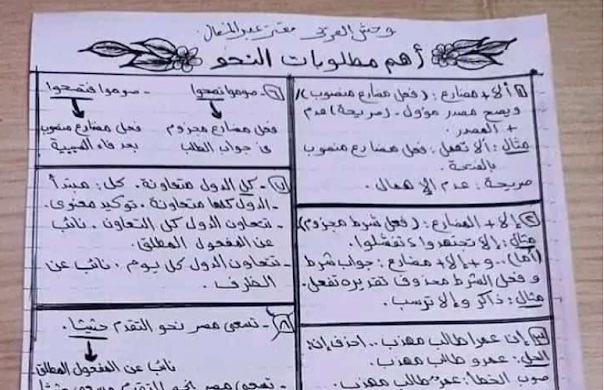 وحش العربي معتز عبد المتعال
أهم مطلوبات النحو
١ ألا + مضارع : (فعل مضارع منصوب)
ويصح مصدر مؤول - (صريحة) عدم
+ المصدر.
مثال : ألا تهمل : فعل مضارع منصوب
بالفتحة
صريحة : عدم الإهمال.
٢ إلا + المضارع : (فعل شرط مجزوم)
مثال : إلا تجتهدوا تفشلوا.
(أما).. و + إلا + مضارع : جواب شرط
و فعل الشرط محذوف تقديره تفعل.
مثال : ذاكر وإلا ترسب.
٣ إن عمرا طالب مهذب .. احذف إن :
الحل : عمرو طالب مهذب.
صوب الخطأ : عمرو طالب مهذب
٦ - صوموا تصحوا - صوموا فتصحوا
فعل مضارع مجزوم فعل مضارع منصوب
في جواب الطلب بعد فاء السببية
٧ - كل الدول متعاونة. كل : مبتدأ
- الدول كلها متعاونة. توكيد معنوى.
- تتعاون الدول كل التعاون. نائب
عن المفعول المطلق.
- تتعاون الدول كل يوم. نائب عن
الظرف.
٨ - تسعى مصر نحو التقدم حثيثا.
نائب عن المفعول المطلق
- تسعى مصر نحو التقدم